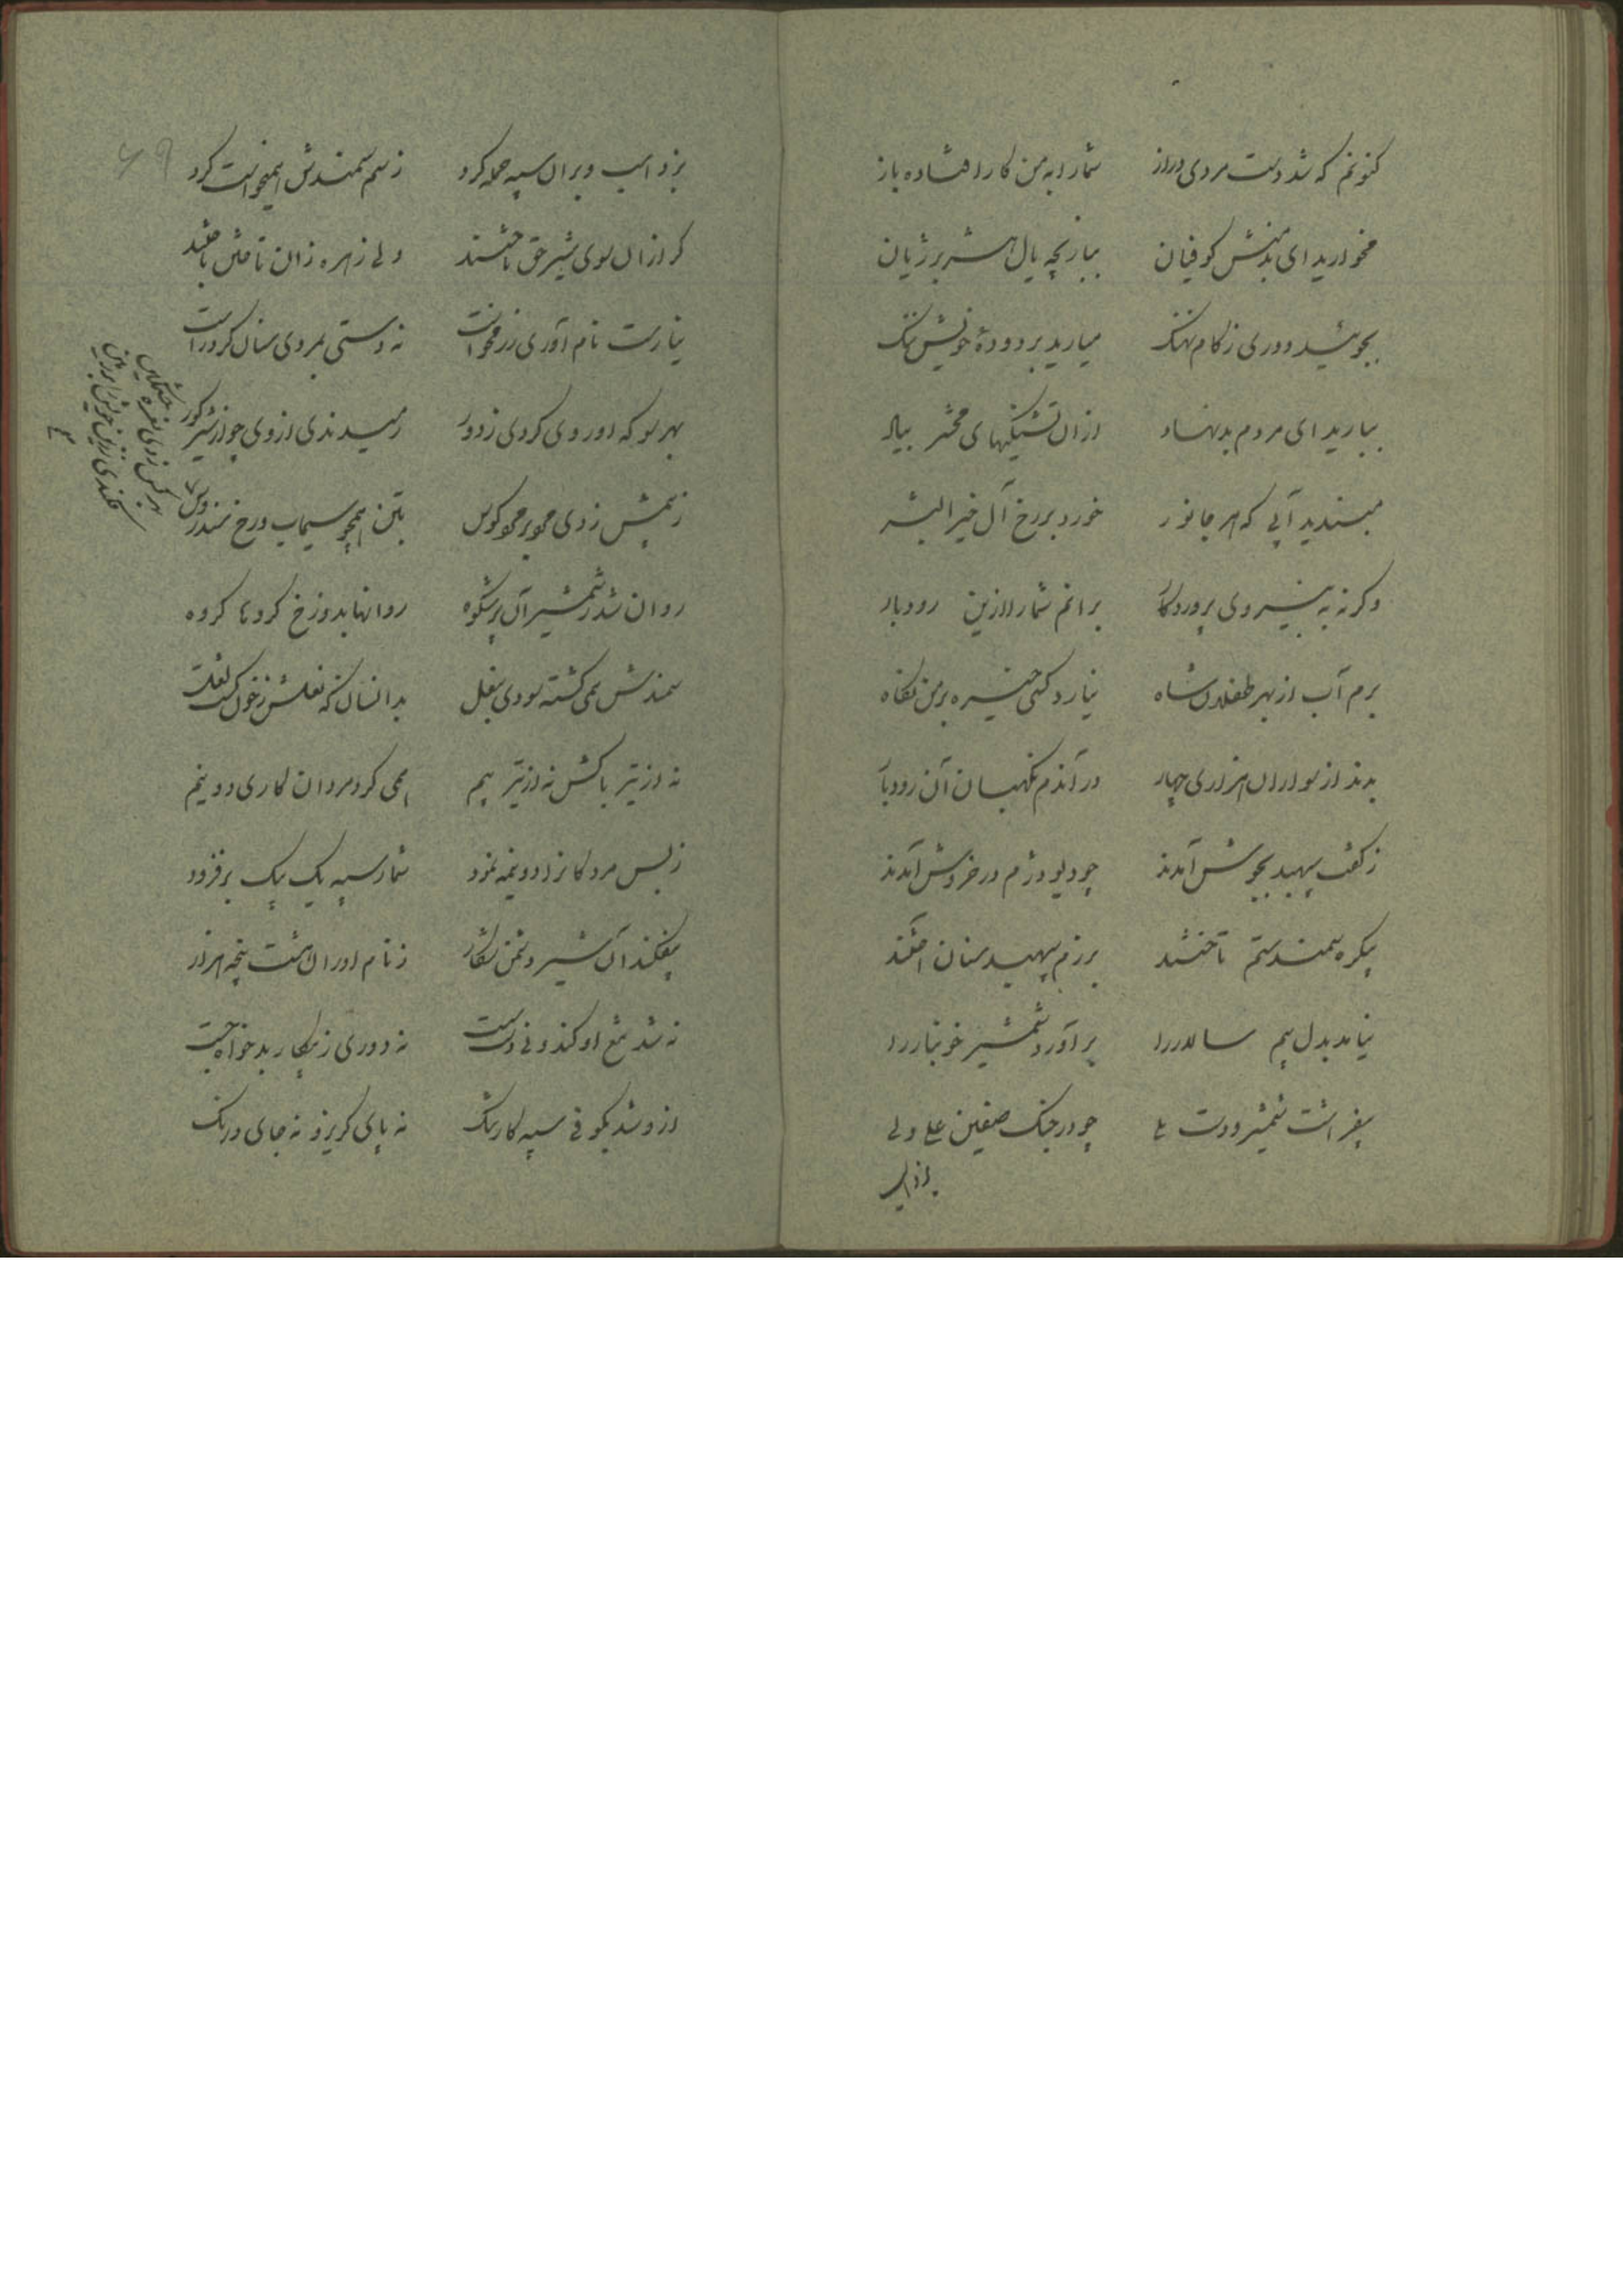 کنونم که شد دست مردی دراز شما را به من کار افتاده باز
مخوارید ای بدمنش کوفیان ببازیچه یال هژبر ژیان
بجوئید دوری ز کام نهنک میارید بر دودهٔ خویش ننک
بیارید ای مردم بدنهاد ازان تشنگیهای محشر بیاد
مبندید آبی که هر جانور خورد بر رخ آل خیر البشر
وکرنه به نیروی پروردکار برانم شما را ازین رودبار
برم آب از بهر طفلان شاه نیارد کسی خیره بر من نگاه
بدند از سواران هزاری چهار در آندم نگهبان آن رودبار
ز کفت سپهبد بجوش آمدند چو دیو دژم در خروش آمدند
یکره سمند ستم تاختند برزم سپهبد سنان آختند
نیامد بدل بیم سالار را برآورد شمشیر خونبار را
بیفراشت شمشیر و دست یلی چو در جنک صفین علی ولی
بزد اسب
بزد اسب و بران سپه حمله کرد ز سم سمندش همیخواست کرد
کرازان سوی شیر حق تاختند ولی زهره زان تاختن باختند
نیارست نام آوری رزمخواست نه دستی بمردی سنان کرد راست
بهر سو که اوروی کردی ز دور رمیدندی از وی چو از شیر کور
ز بیمش زدی مو بر مو کوس بتن همچو سیماب و رخ سندروس
روان شد ز شمشیر آن پرشکوه روانها بدوزخ کروها کروه
سمندش همی کشته سودی بنعل بدانسان که نعلش ز خون کشت لعل
نه از تیر باکش نه از تیر بیم همی کرد مردان کاری دو نیم
ز بس مردکانرا دو نیمه نمود شمار سپه یک بیک برفزود
بیفکند آن شیر دشمن شکار ز نام آوران هشت پنجه هزار
نه شد تیغ او کند و نی دست سست نه دوری ز پیکار بدخواه جست
ازو شد بکوفی سپه کار تنک نه پای کریز و نه جای درنک
۶۹